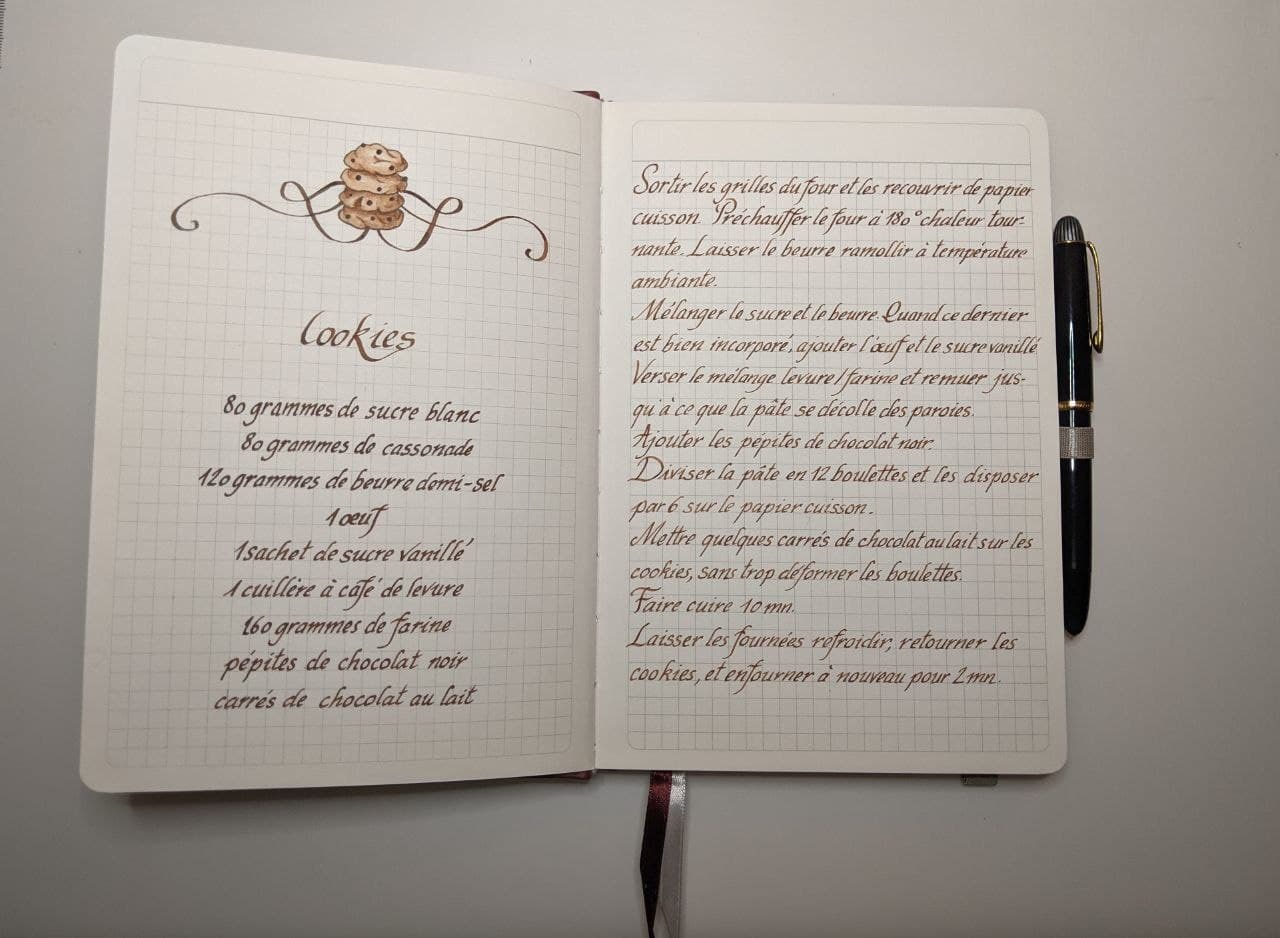 Cookies
80 grammes de sucre blanc
80 grammes de cassonade
120 grammes de beurre demi-sel
1 œuf
1 sachet de sucre vanillé
1 cuillère à café de levure
160 grammes de farine
pépites de chocolat noir
carrés de chocolat au lait
Sortir les grilles du four et les recouvrir de papier
cuisson. Préchauffer le four à 180° chaleur tour-
nante. Laisser le beurre ramollir à température
ambiante.
Mélanger le sucre et le beurre. Quand ce dernier
est bien incorporé, ajouter l'œuf et le sucre vanillé
Verser le mélange levure/farine et remuer jus-
qu'à ce que la pâte se décolle des paroies.
Ajouter les pépites de chocolat noir.
Diviser la pâte en 12 boulettes et les disposer
par 6 sur le papier cuisson.
Mettre quelques carrés de chocolat au lait sur les
cookies, sans trop déformer les boulettes.
Faire cuire 10 mn.
Laisser les fournées refroidir, retourner les
cookies, et enfourner à nouveau pour 2 mn.